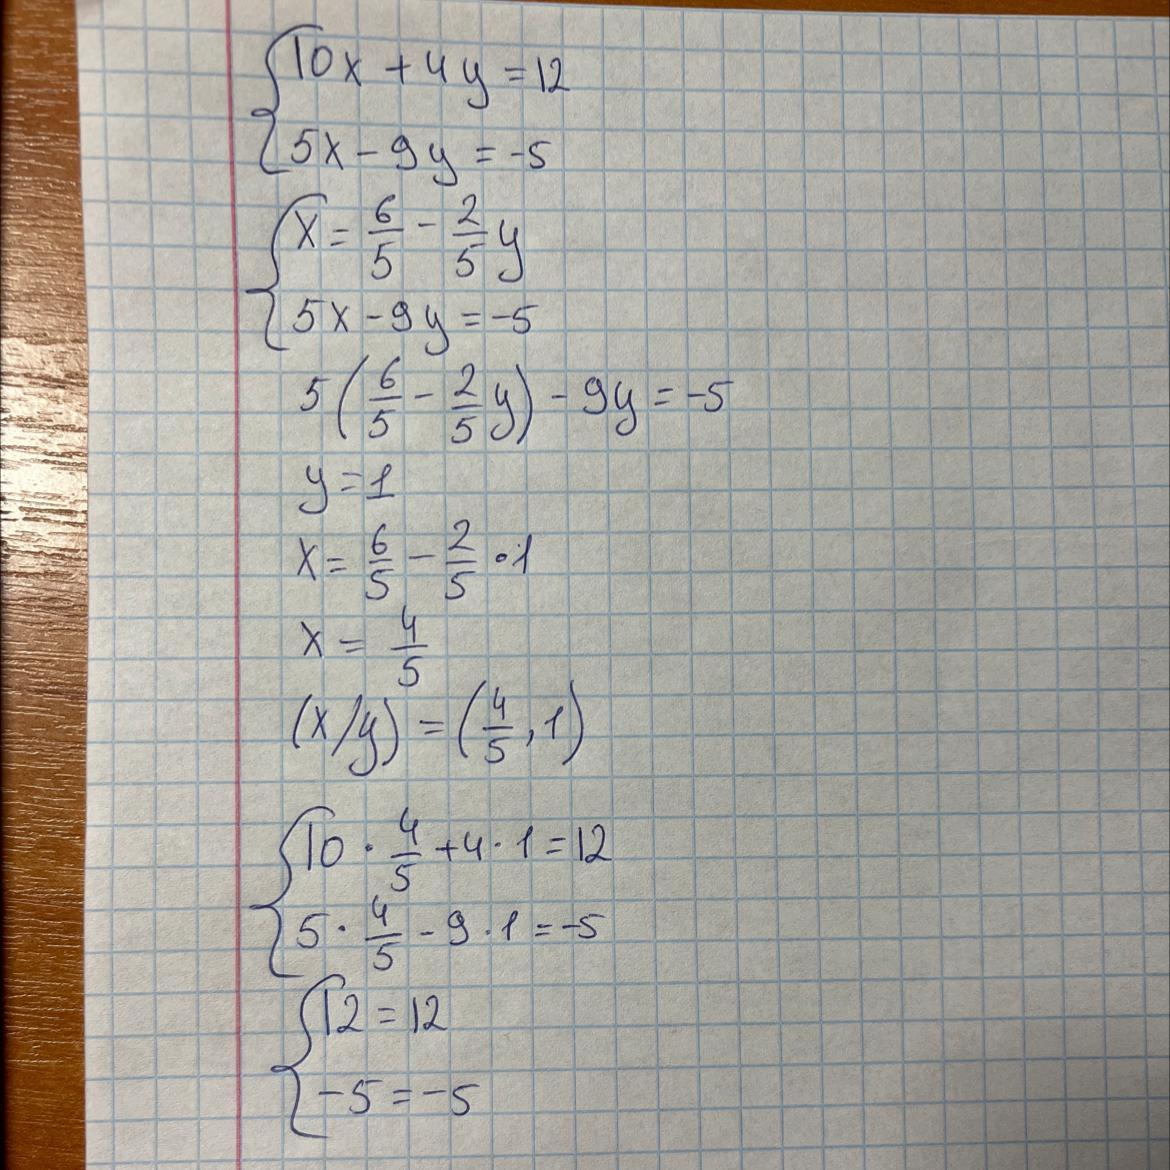 {10x + 4y = 12
{5x - 9y = -5
{x = 6/5 - 2/5 y
{5x - 9y = -5
5(6/5 - 2/5 y) - 9y = -5
y = 1
x = 6/5 - 2/5 · 1
x = 4/5
(x/y) = (4/5, 1)
{10 · 4/5 + 4 · 1 = 12
{5 · 4/5 - 9 · 1 = -5
{12 = 12
{-5 = -5